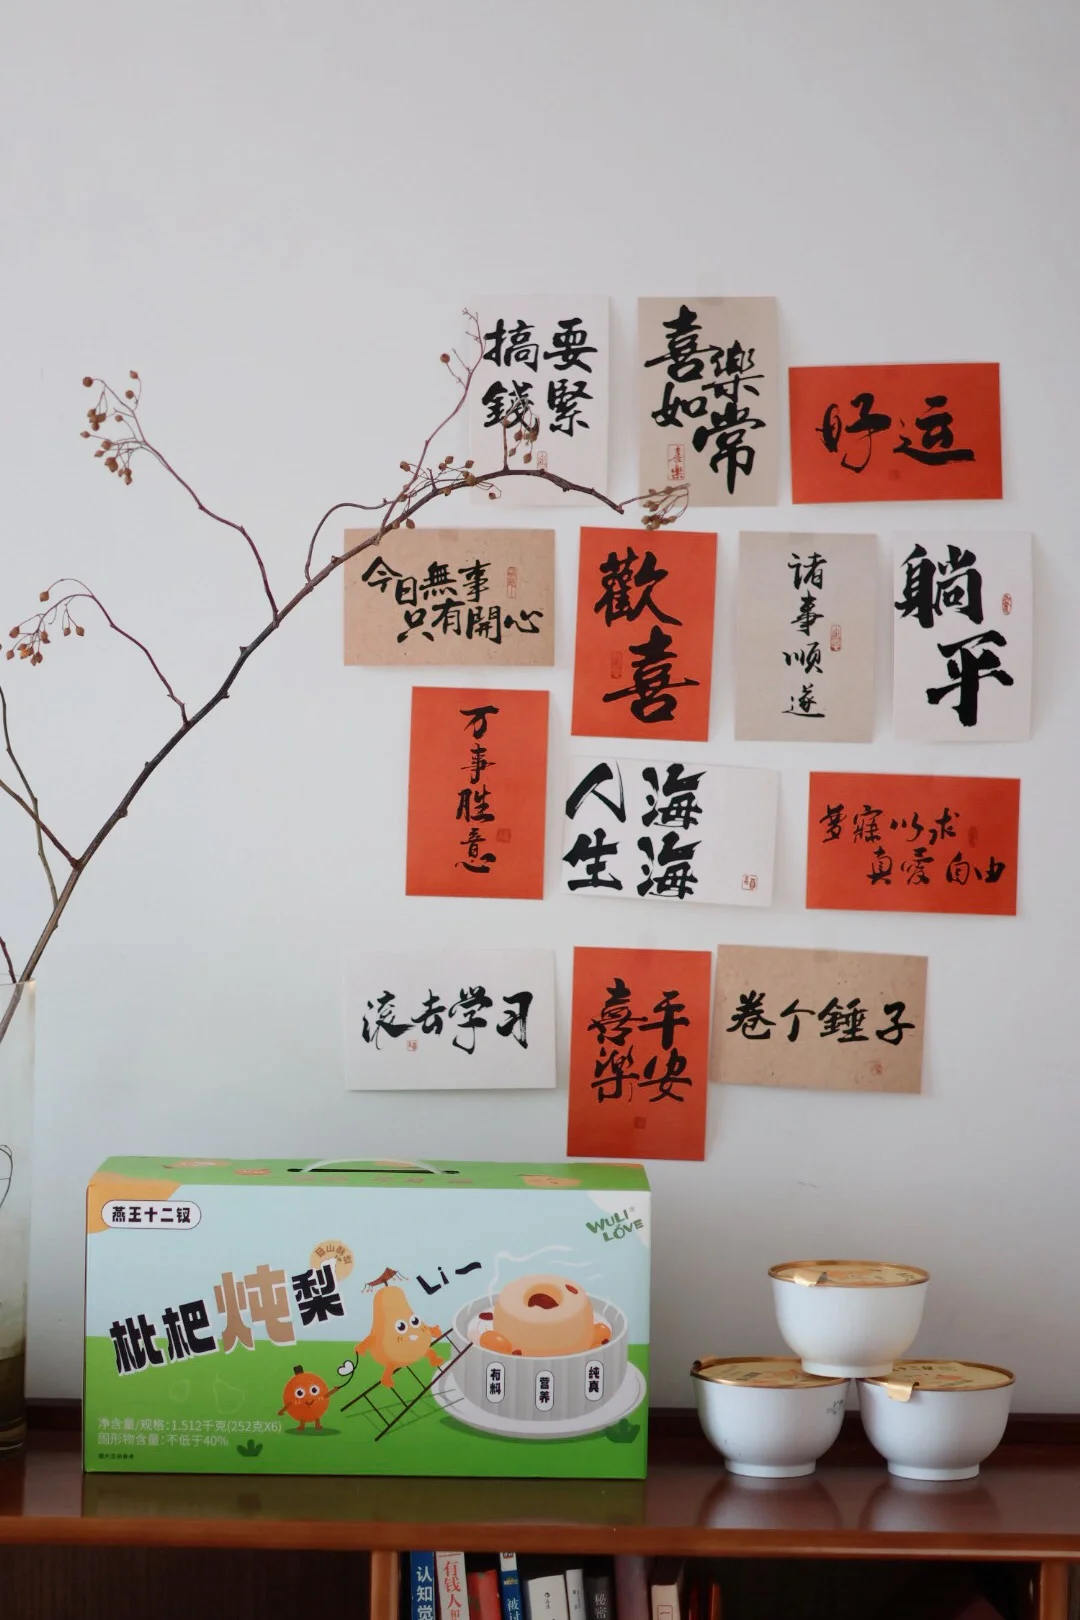 搞錢
要緊
喜樂
如常
好运
今日無事
只有開心
歡喜
诸事顺遂
躺平
万事胜意
人生
海海
梦寐以求
真爱自由
滚去学习
喜樂
平安
卷个錘子
燕王十二钗
WULI LOVE
枇杷炖梨
Li一
有料
营养
纯真
净含量/规格:1.512千克(252克X6)
固形物含量:不低于40%
认知觉
有钱人和
被讨
秘密